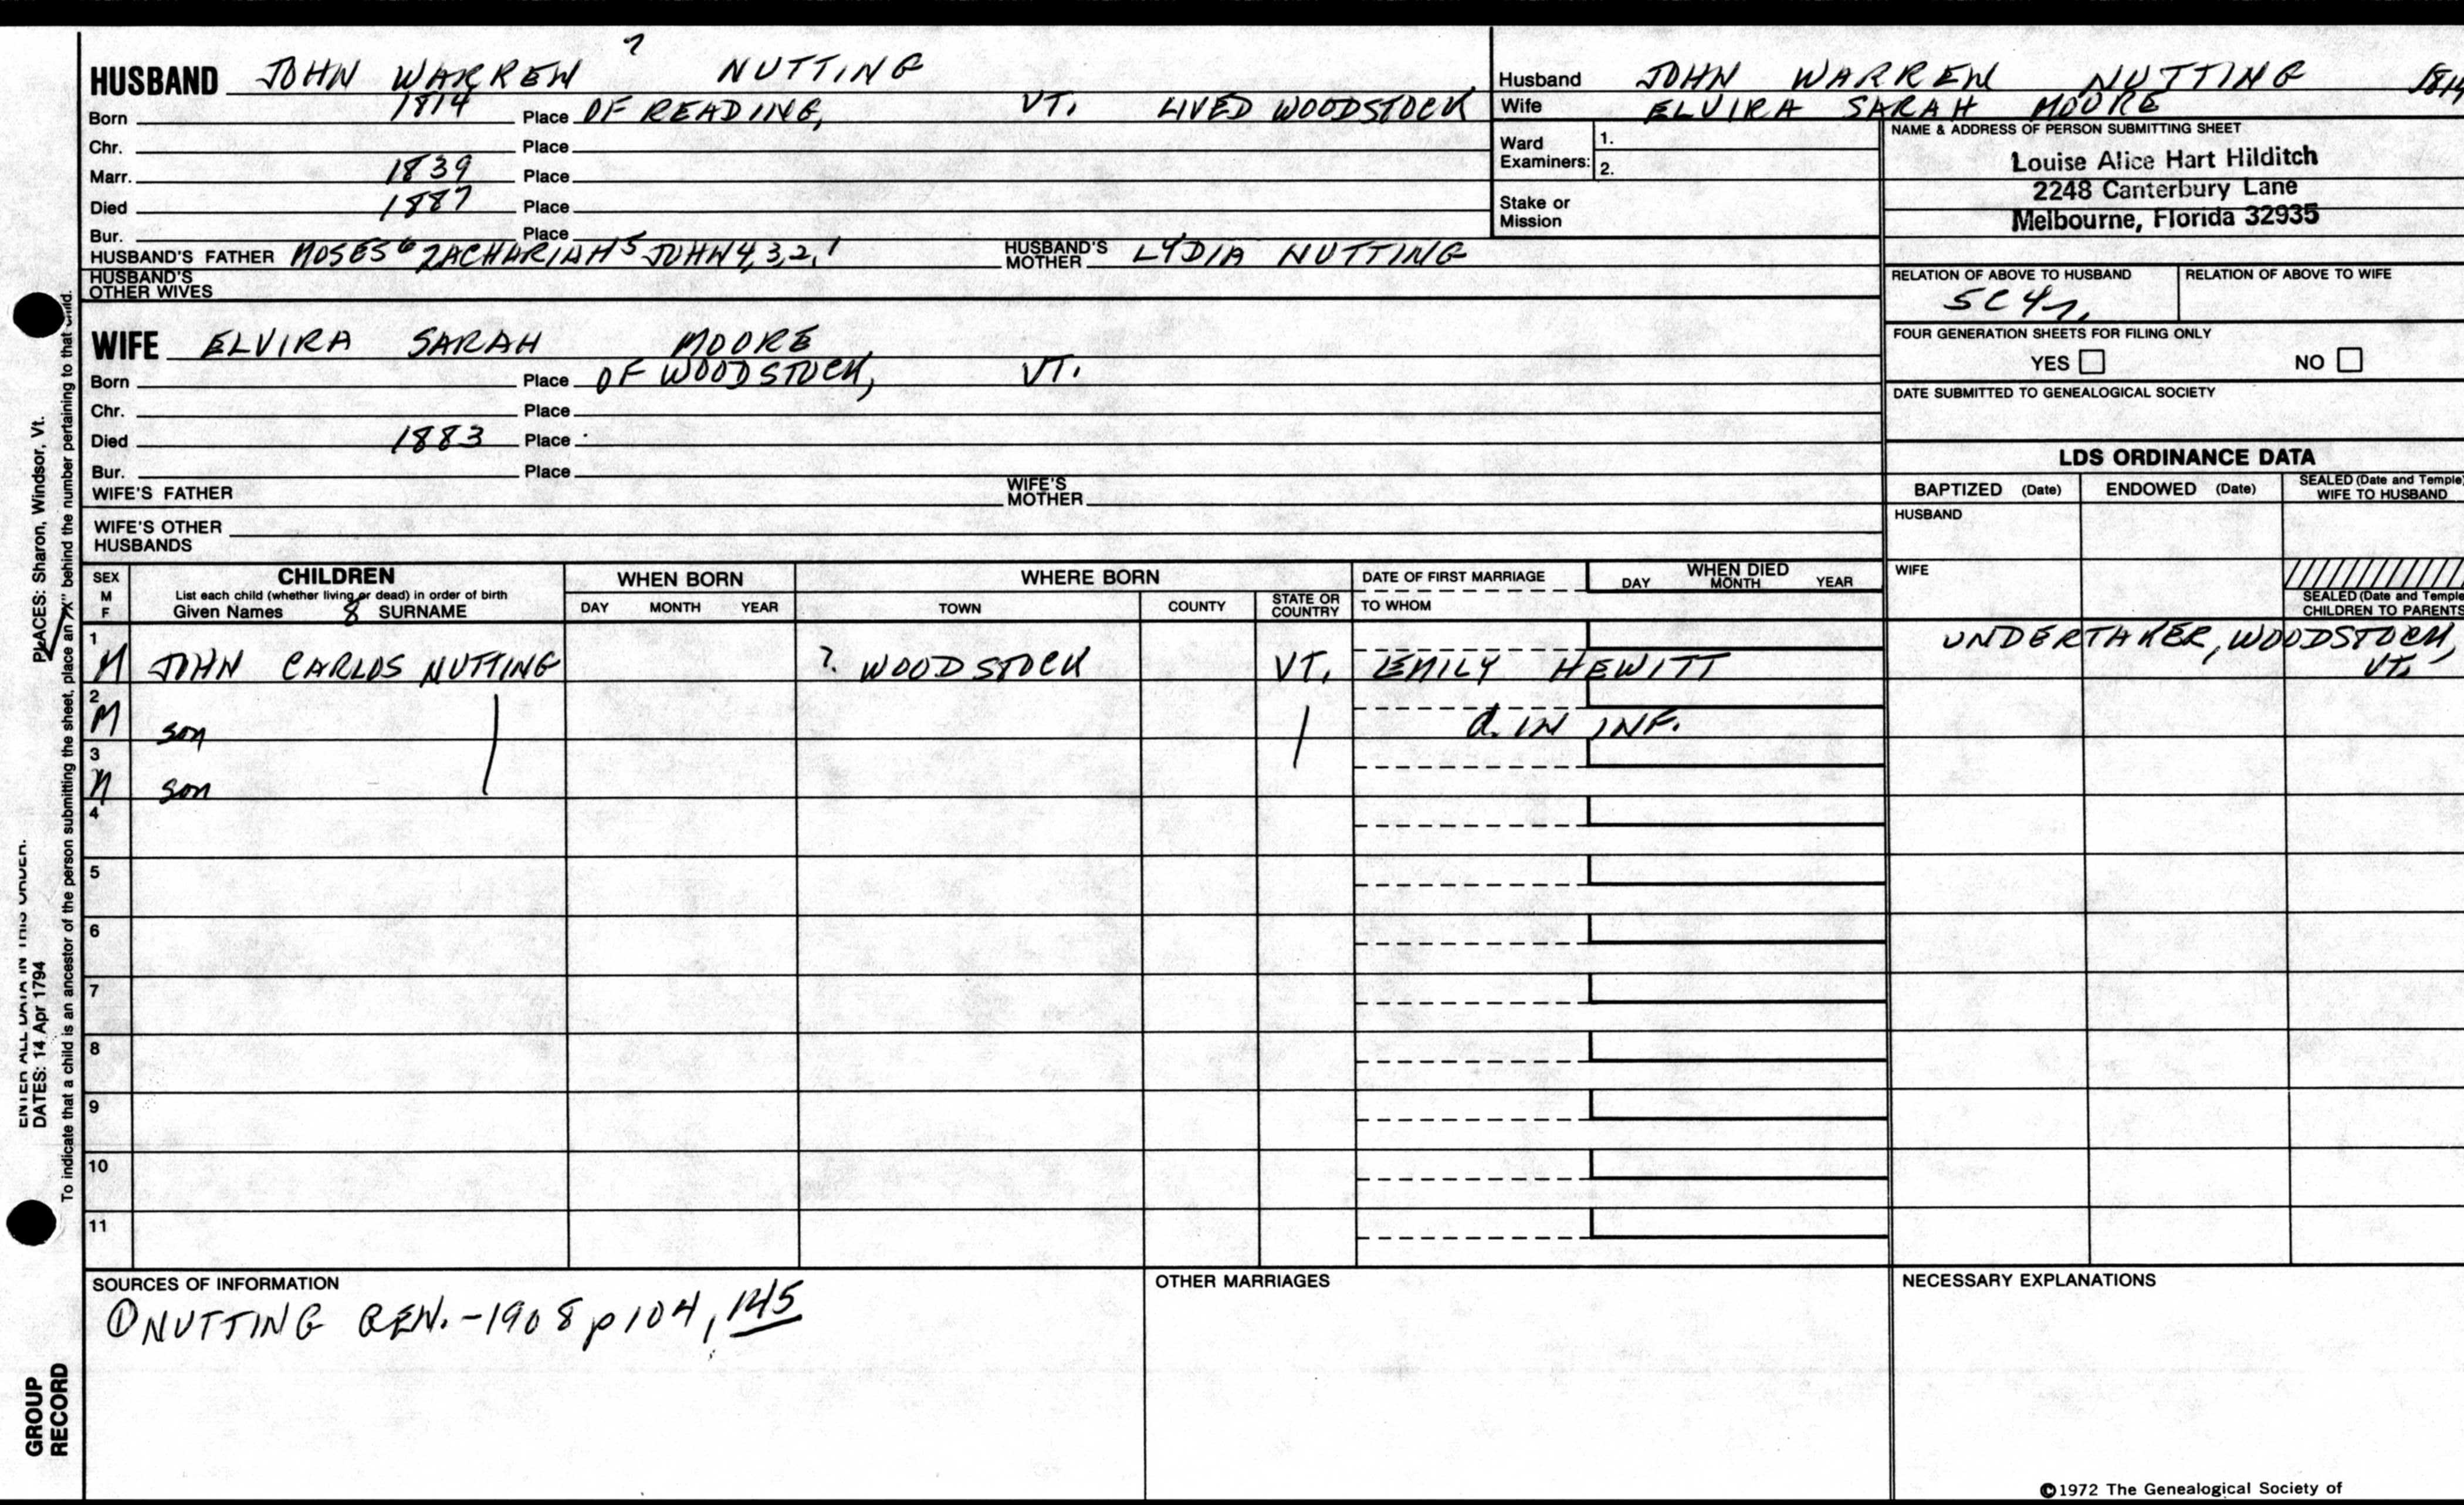 HUSBAND JOHN WARREN 7 NUTTING
Born 1814 Place OF READING, VT. LIVED WOODSTOCK
Chr. Place
Marr. 1839 Place
Died 1887 Place
Bur. Place
HUSBAND'S FATHER MOSES 6 ZACHARIAH 5 JOHN 4, 3, 2, 1 HUSBAND'S MOTHER LYDIA NUTTING
HUSBAND'S OTHER WIVES
WIFE ELVIRA SARAH MOORE
Born Place OF WOODSTOCK, VT.
Chr. Place
Died 1883 Place
Bur. Place
WIFE'S FATHER WIFE'S MOTHER
WIFE'S OTHER HUSBANDS
Husband JOHN WARREN NUTTING 1814
Wife ELVIRA SARAH MOORE
Ward Examiners: 1.
2.
Stake or Mission
NAME & ADDRESS OF PERSON SUBMITTING SHEET
Louise Alice Hart Hilditch
2248 Canterbury Lane
Melbourne, Florida 32935
RELATION OF ABOVE TO HUSBAND RELATION OF ABOVE TO WIFE
5C4r.
FOUR GENERATION SHEETS FOR FILING ONLY
YES NO
DATE SUBMITTED TO GENEALOGICAL SOCIETY
LDS ORDINANCE DATA
BAPTIZED (Date) ENDOWED (Date) SEALED (Date and Temple) WIFE TO HUSBAND
HUSBAND
WIFE
SEALED (Date and Temple) CHILDREN TO PARENTS
SEX M F CHILDREN WHEN BORN WHERE BORN DATE OF FIRST MARRIAGE WHEN DIED
List each child (whether living or dead) in order of birth DAY MONTH YEAR
Given Names 8 SURNAME DAY MONTH YEAR TOWN COUNTY STATE OR COUNTRY TO WHOM
1 M JOHN CARLOS NUTTING ? WOODSTOCK VT. EMILY HEWITT UNDERTAKER, WOODSTOCK, VT.
2 M son d. IN INF.
3 M son
4
5
6
7
8
9
10
11
SOURCES OF INFORMATION
① NUTTING GEN. - 1908 p 104, 145
OTHER MARRIAGES
NECESSARY EXPLANATIONS
©1972 The Genealogical Society of
PLACES: Sharon, Windsor, Vt.
ENTER ALL DATA IN THIS ORDER:
DATES: 14 Apr 1794
To indicate that a child is an ancestor of the person submitting the sheet, place an "X" behind the number pertaining to that child.
GROUP
RECORD